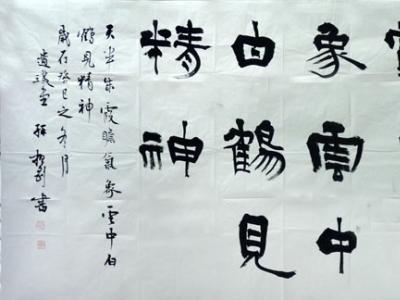 象雲中
白鶴見
精神
天半朱霞瞻氣象雲中白
鶴見精神
歲在癸巳之冬月
書